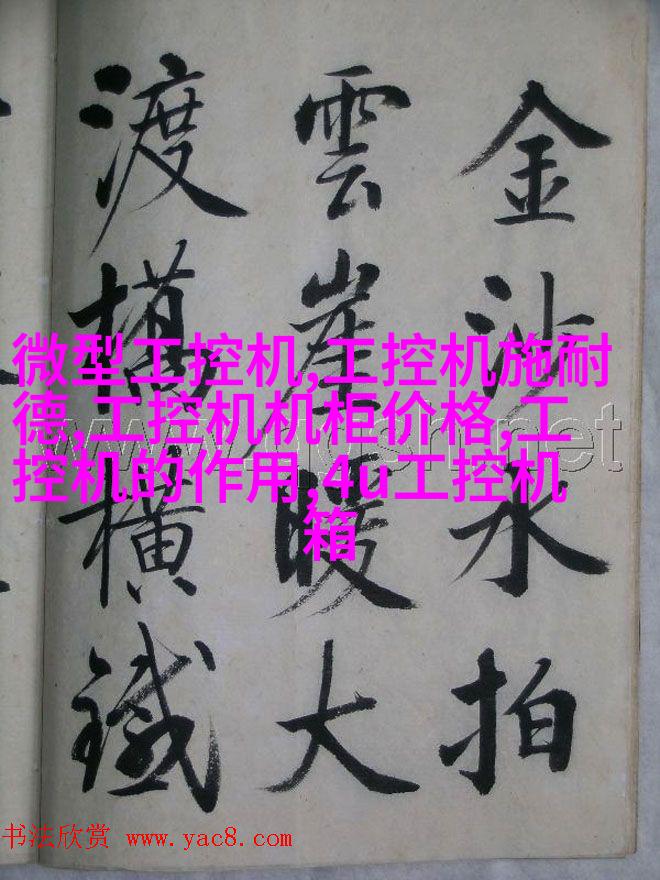 金沙水拍
雲崖暖大
渡橋橫鐵
微型工控机,工控机施耐
德,工控机机柜价格,工
控机的作用,4u工控机
箱
书法欣赏 www.yac8.com